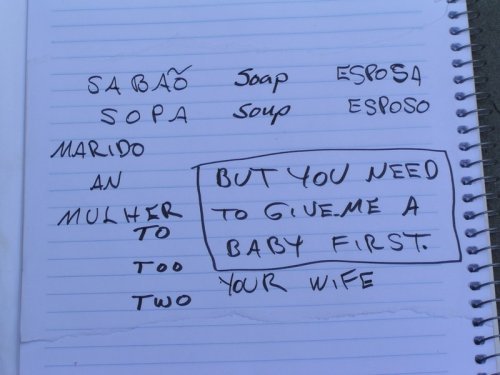 SABÃO Soap ESPOSA
SOPA Soup ESPOSO
MARIDO
AN
MULHER
TO
TOO
TWO
BUT YOU NEED
TO GIVE ME A
BABY FIRST.
YOUR WIFE